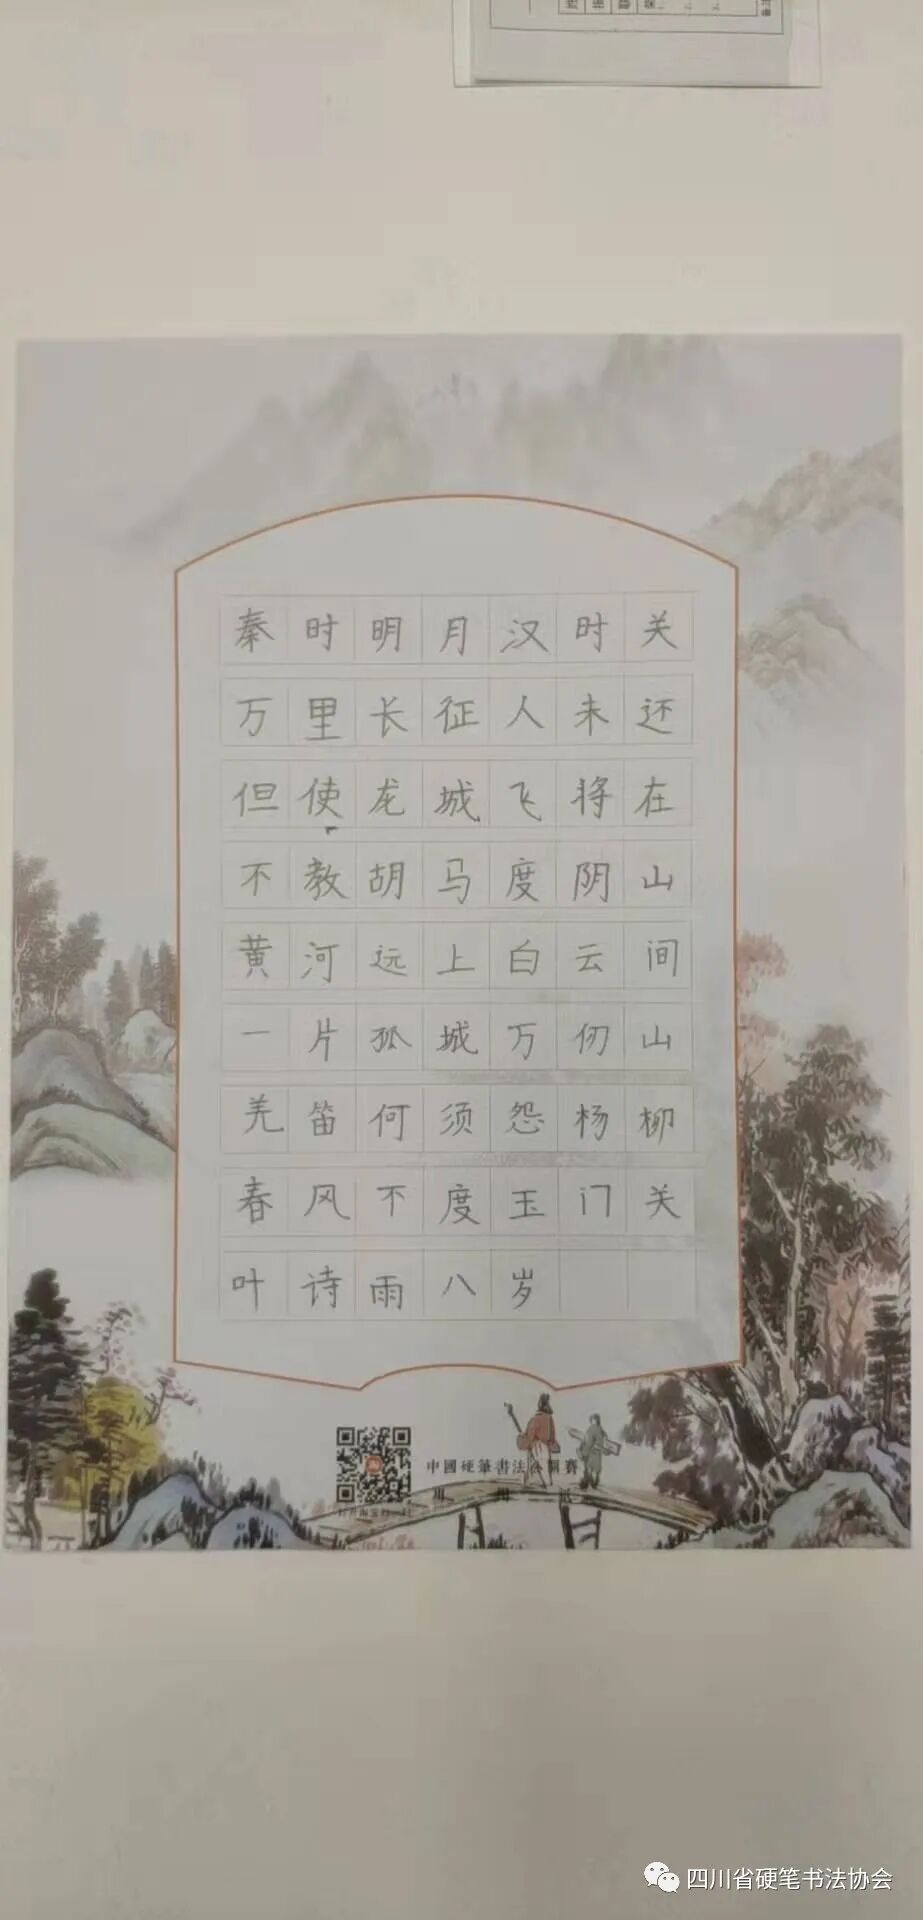 秦时明月汉时关
万里长征人未还
但使龙城飞将在
不教胡马度阴山
黄河远上白云间
一片孤城万仞山
羌笛何须怨杨柳
春风不度玉门关
叶诗雨八岁
四川省硬笔书法协会